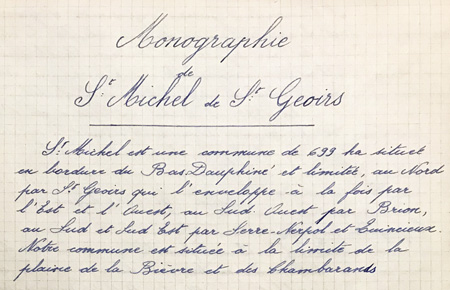 Monographie
de
St Michel de St Geoirs
St Michel est une commune de 699 ha situé
en bordure du Bas-Dauphiné et limité, au Nord
par St Geoirs qui l'enveloppe à la fois par
l'Est et l'Ouest, au Sud Ouest par Brion,
au Sud et Sud Est par Serre-Nerpol et Quincieux.
Notre commune est située à la limite de la
plaine de la Bièvre et des Chambarands